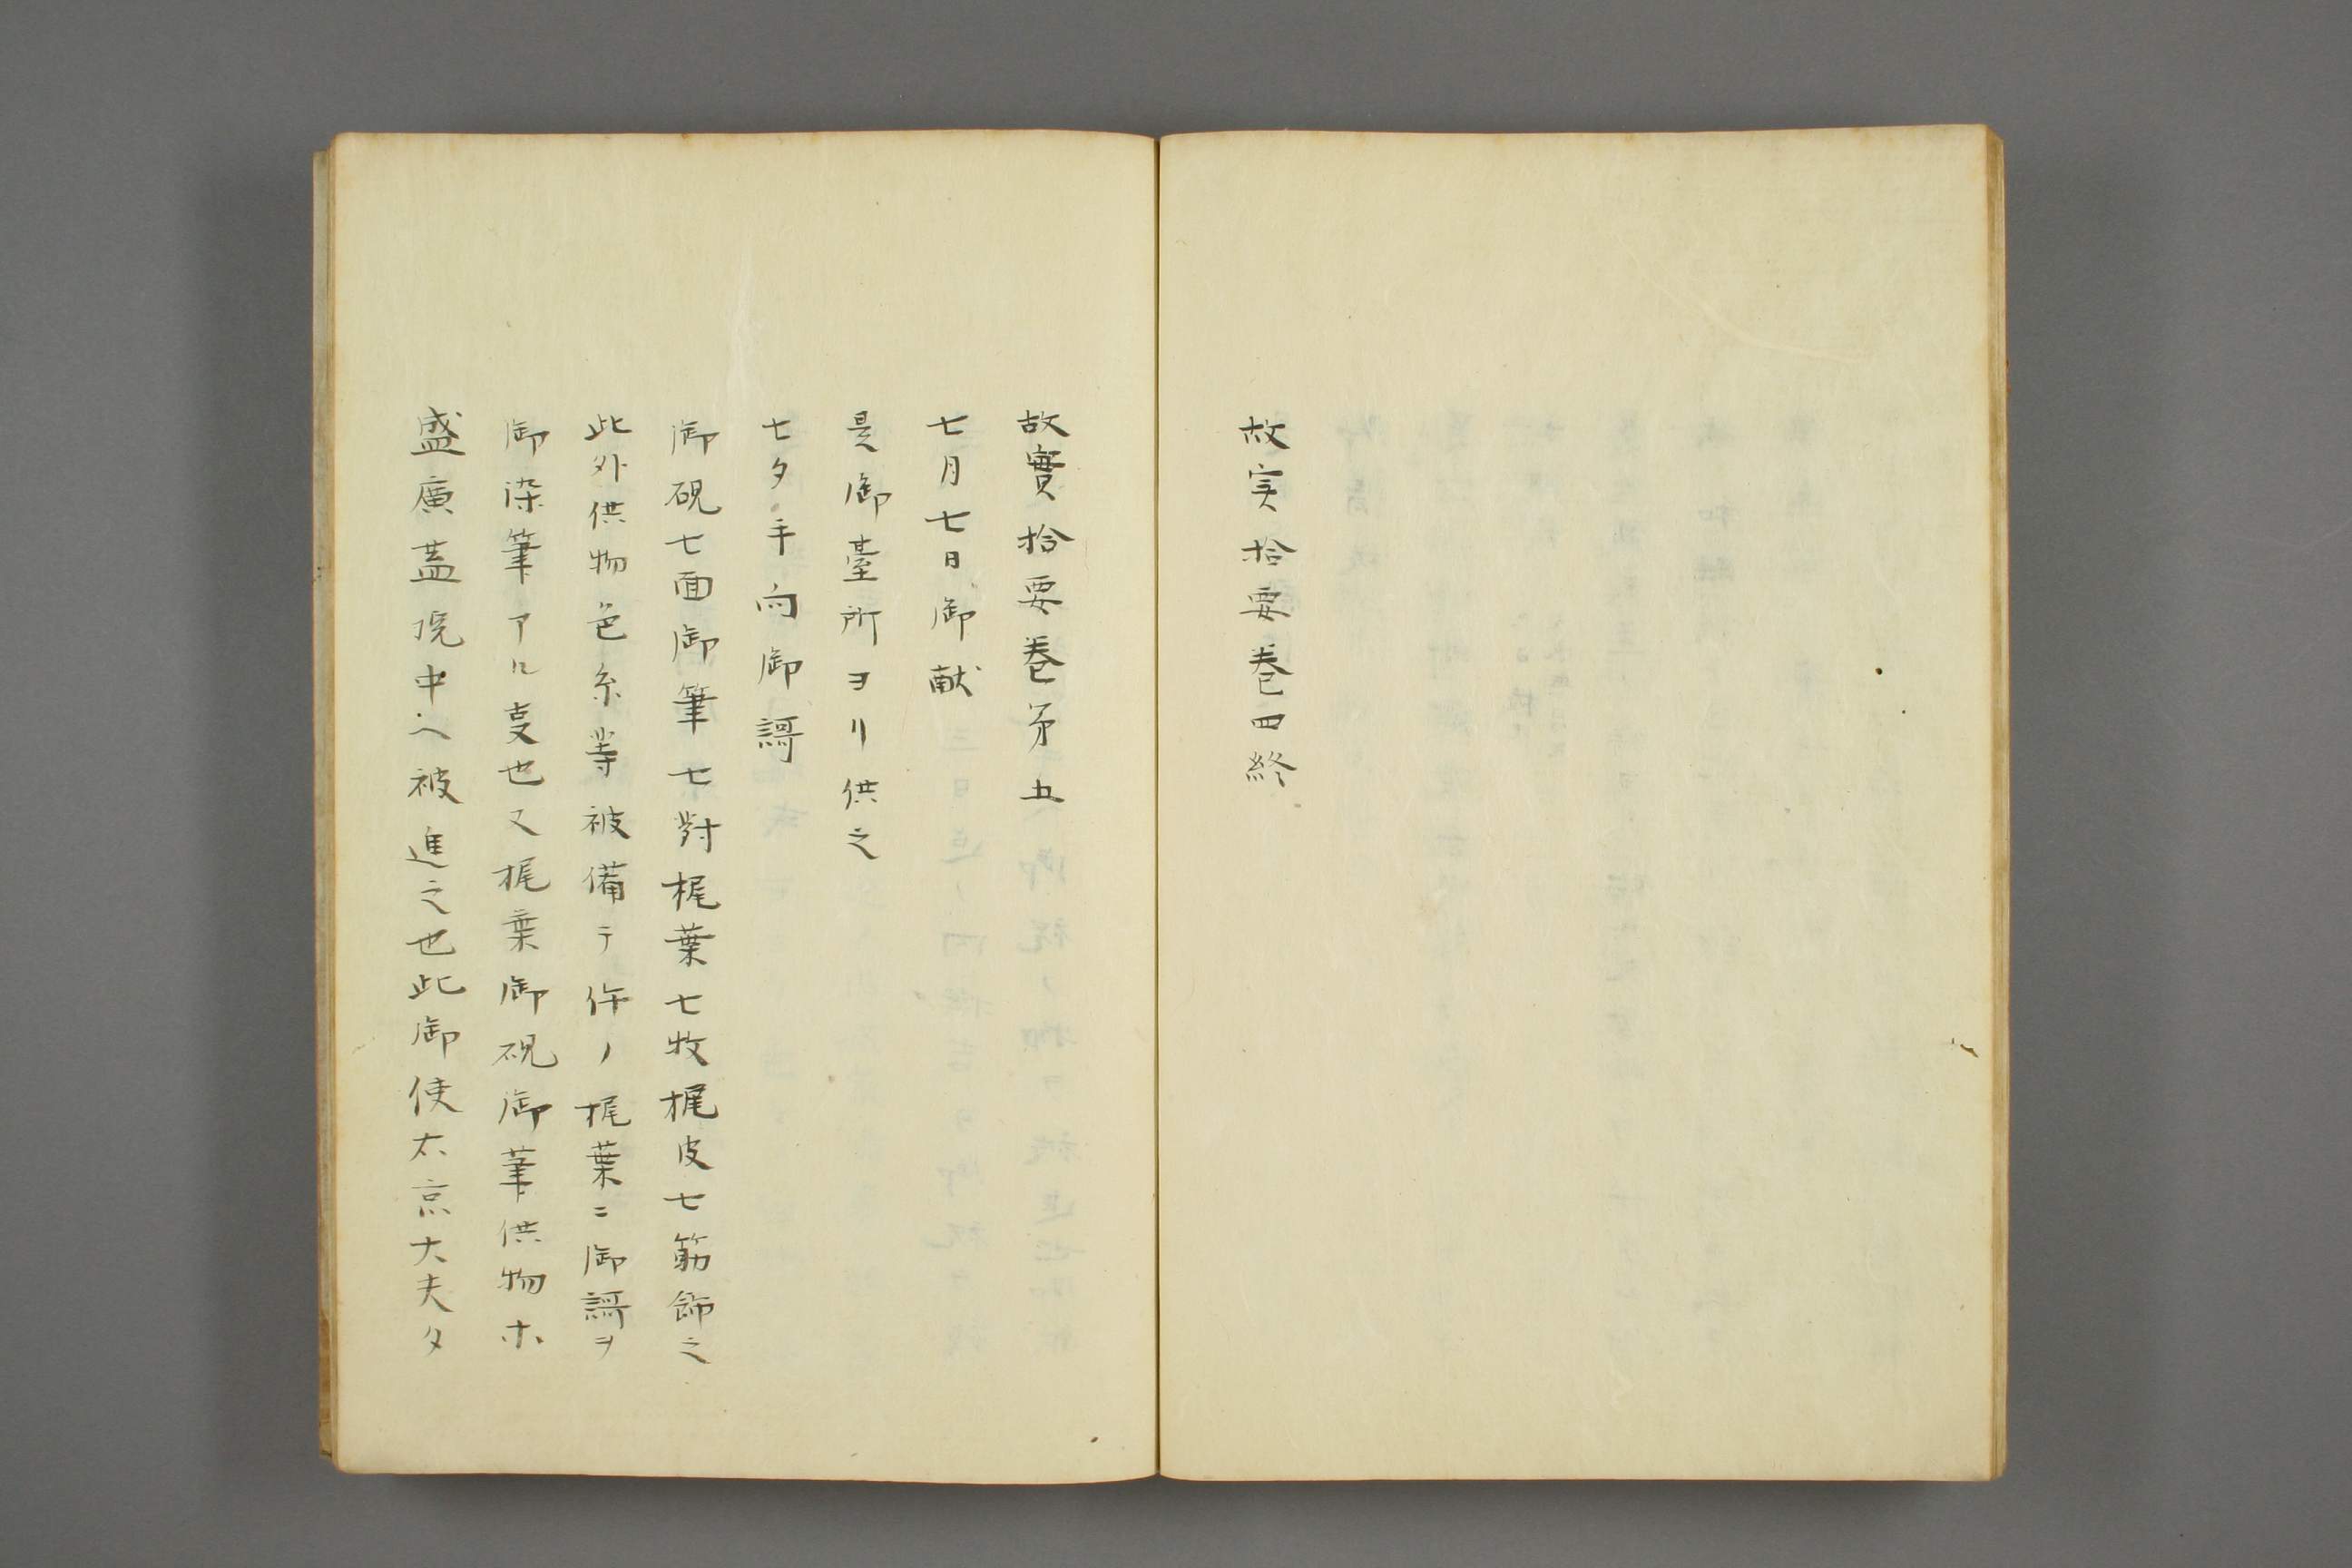 故実拾要巻四終
故實拾要巻第五
七月七日御献
是御臺所ヨリ供之
七夕手向御謌
御硯七面御筆七對梶葉七枚梶皮七筋飾之
此外供物色糸等被備テ件ノ梶葉ニ御謌ヲ
御染筆アル支也又梶葉御硯御筆供物ホ
盛廣蓋院中ヘ被進之也此御使太京大夫タ